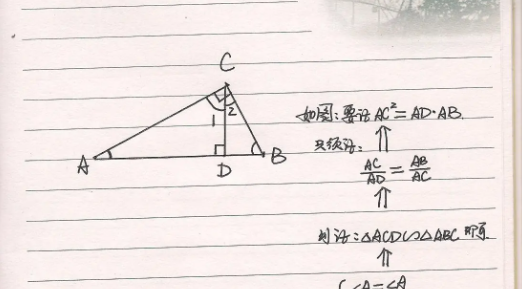 C
1 2
A D B
如图:要证 AC²=AD·AB.
⇑
只须证:
AC/AD = AB/AC
⇑
证:△ACD∽△ABC 即可
⇑
∠A=∠A